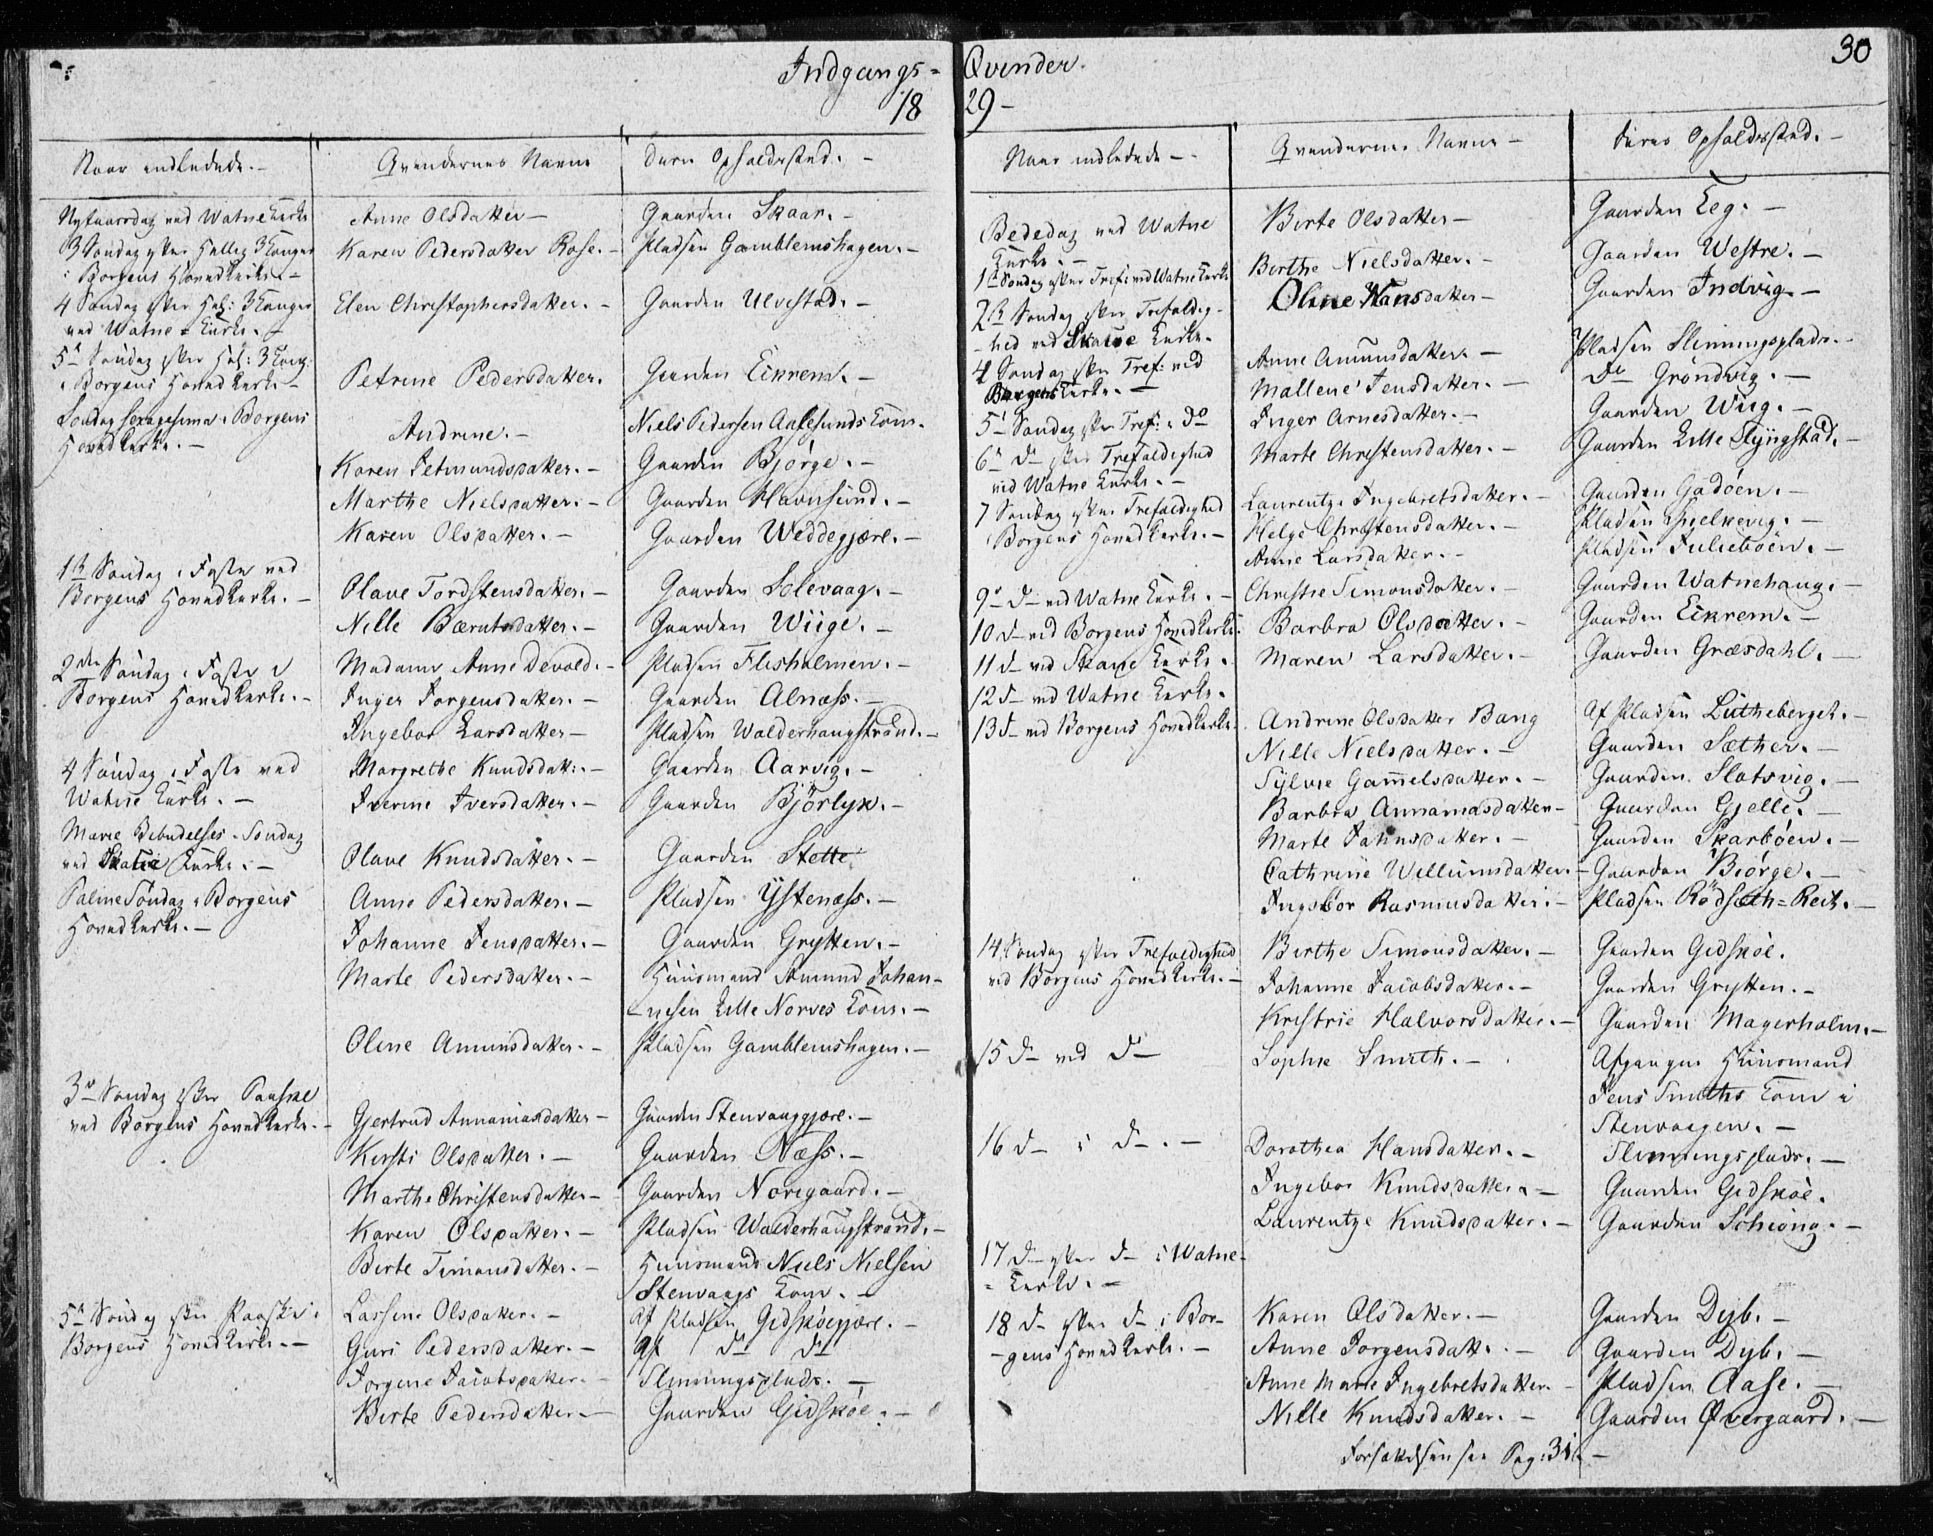 Indgangs=
18
Naar indledede.- Qvendernes Navne deres Opholdssted.-
Nytaarsdag ved Watne Kirke Anne Olsdatter- Gaarden Skaar.-
3 Søndag efter Hellig 3 Konger Karen Pedersdatter Rose.- Pladsen Gamblemshagen.-
i Borgens Hovedkirke.-
4 Søndag efter Hel: 3 Konger Elen Christophersdatter.- Gaarden Ulvestad.-
ved Watne=Kirke.-
5te Søndag efter Hel: 3 Kong:
i Borgens Hoved Kirke- Petrine Pedersdatter. Gaarden Eikrem.-
Søndag Sexagesima i Borgens Andrine.- Niels Pedersen Aalesunds Kone.
Hovedkirke.-
Karen Petmundsdatter.- Gaarden Bjørge.-
Marthe Nielsdatter.- Gaarden Havnsund.-
Karen Olsdatter.- Gaarden Weddegjære.-
1ste Søndag i Faste ved
Borgens Hovedkirke.- Olave Tordstensdatter.- Gaarden Solevaag.-
Nille Bærntsdatter.- Gaarden Wiige.-
2den Søndag i Faste i Madame Anne Devold.- Pladsen Flisholmen.-
Borgens Hovedkirke.- Inger Jørgensdatter.- Gaarden Alnæss.-
Ingebor Larsdatter- Pladsen Walderhaugstrand.-
4 Søndag i Faste ved Margrethe Knudsdatt:.- Gaarden Aarvig.-
Watne Kirke.- Iverine Iversdatter.- Gaarden Bjørlyk.-
Marie Bebudelses-Søndag
ved Skatie Kirke.- Olave Knudsdatter.- Gaarden Stette.
Palme Søndag i Borgens Anne Pedersdatter.- Pladsen Ystenæss.-
Hovedkirke.-
Johanne Jensdatter.- Gaarden Grytten.-
Marte Pedersdatter.- Huusmand Amund Johan-
-nesen Lille Nørves Kone.-
Oline Amunsdatter.- Pladsen Gamblemshagen.-
3die Søndag efter Paaske
ved Borgens Hovedkirke.- Gjertrud Annaniasdatter- Gaarden Stenvaaggjære.-
Kirsti Olsdatter.- Gaarden Næss.-
Marthe Christensdatter- Gaarden Noregaard.-
Karen Olsdatter.- Pladsen Walderhaugstrand.-
Birte Simonsdatter.- Huusmand Niels Nielsen
Stenvaags Kone.-
5te Søndag efter Paaske i Lassene Olsdatter.- Af Pladsen Gidskøegjære.-
Borgens Hovedkirke.- Guri Pedersdatter.- Af do do
Jørgine Jacobsdatter.- Slinningsplads.-
Birte Pedersdatter.- Gaarden Gidskøe.-
Qvinder.
29-
30
Naar indledede-. Qvendernes Navne- deres Opholdssted.-
Bededag ved Watne Birte Olsdatter- Gaarden Eeg.-
Kirke.-
1ste Søndag efter Tref: ved Watne Kirke Birthe Nielsdatter.- Gaarden Westre.-
2den Søndag efter Trefoldig- Oline Hansdatter- Gaarden Indvig.-
-hed ved Skatie Kirke.-
4 Søndag efter Tref: ved Anne Amunsdatter.- Pladsen Slinningsplads.-
Borgens Kirke.- Mallene Jensdatter.- do Grøndvig.-
5te Søndag efter Tref: i do Inger Arnesdatter.- Gaarden Wiig.-
6te do efter Trefoldighed Marte Christensdatter.- Gaarden Lille Slyngstad.-
ved Watne Kirke.-
7 Søndag efter Trefoldighed Laurentze Ingebretsdatter.- Gaarden Gadøen.-
i Borgens Hovedkirke.- Helge Christensdatter.- Pladsen Spjelkevig.-
Anne Larsdatter.- Pladsen Julieboen.-
9de do ved Watne Kirke.- Christie Simonsdatter.- Gaarden Watnehaug.-
10 do ved Borgens Hovedkirke. Barbra Olsdatter.- Gaarden Eikrem.-
11 do ved Skatie Kirke. Maren Larsdatter.- Gaarden Græsdahl.-
12 do ved Watne Kirke.
13 do ved Borgens Hovedkirke. Andrine Olsdatter Bang Af Pladsen Lütheberget.-
Nille Nielsdatter.- Gaarden Sæther.-
Sylvie Gammelsdatter.- Gaarden Slotsvig.-
Barbra Annaniasdatter- Gaarden Gjelle.-
Marte Jahnsdatter.- Gaarden Skarbøen.-
Cathrine Willumsdatter.- Gaarden Biørge.-
Ingebor Rasmusdatter.- Pladsen Rødsæth=Reit.-
14 Søndag efter Trefoldighed Birthe Simonsdatter.- Gaarden Gidskøe.
ved Borgens Hovedkirke.- Johanne Jacobsdatter.- Gaarden Grytten.-
Kristrie Halvorsdatter.- Gaarden Magerholm.-
15 do ved do- Sophie Smith.- Afgangne Huusmand
Jens Smiths Kone i
Stenvaagen.-
16 do i do.- Dorothea Hansdatter.- Slinningsplads.-
Ingebor Knudsdatter.- Gaarden Gidskøe.
Laurentze Knudsdatter.- Gaarden Schiøng.-
17 do efter do i Watne-
=Kirke.-
18 do efter do i Bor- Karen Olsdatter.- Gaarden Dyb.-
-gens Hovedkirke.- Anne Jørgensdatt..- Gaarden Dyb.-
Anne Marie Ingebretsdatter.- Pladsen Aase.-
Nille Knudsdatter.- Gaarden Øvergaard.-
Forsættelsen see Pag: 31.-